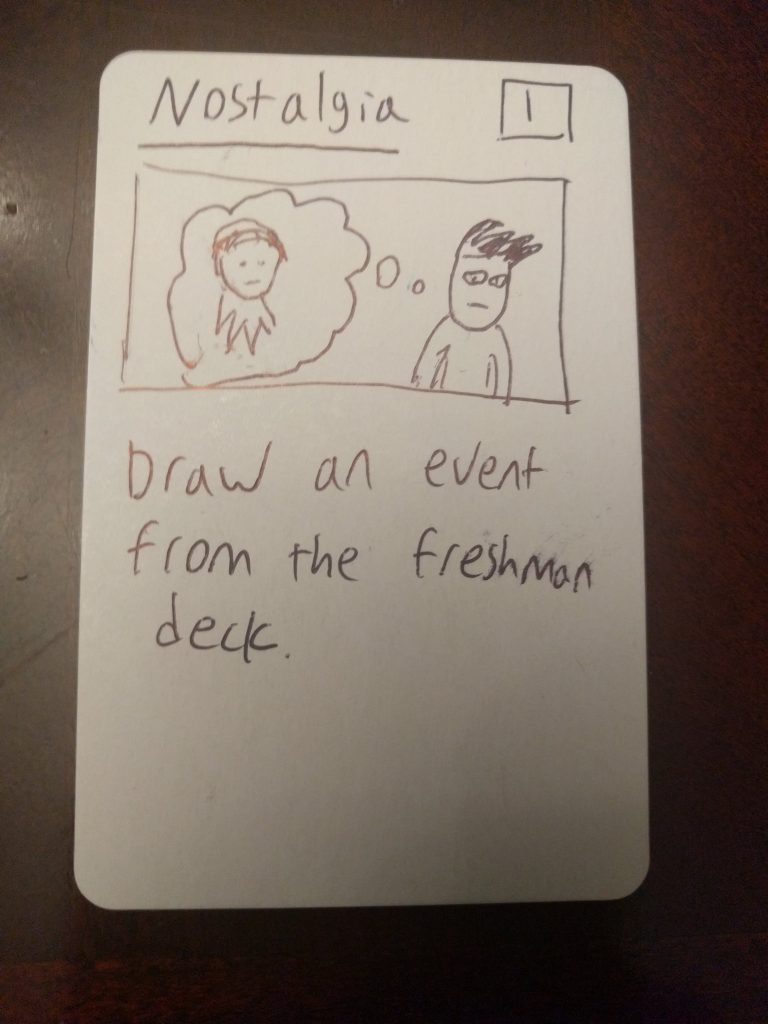 Nostalgia 1
Draw an event
from the freshman
deck.